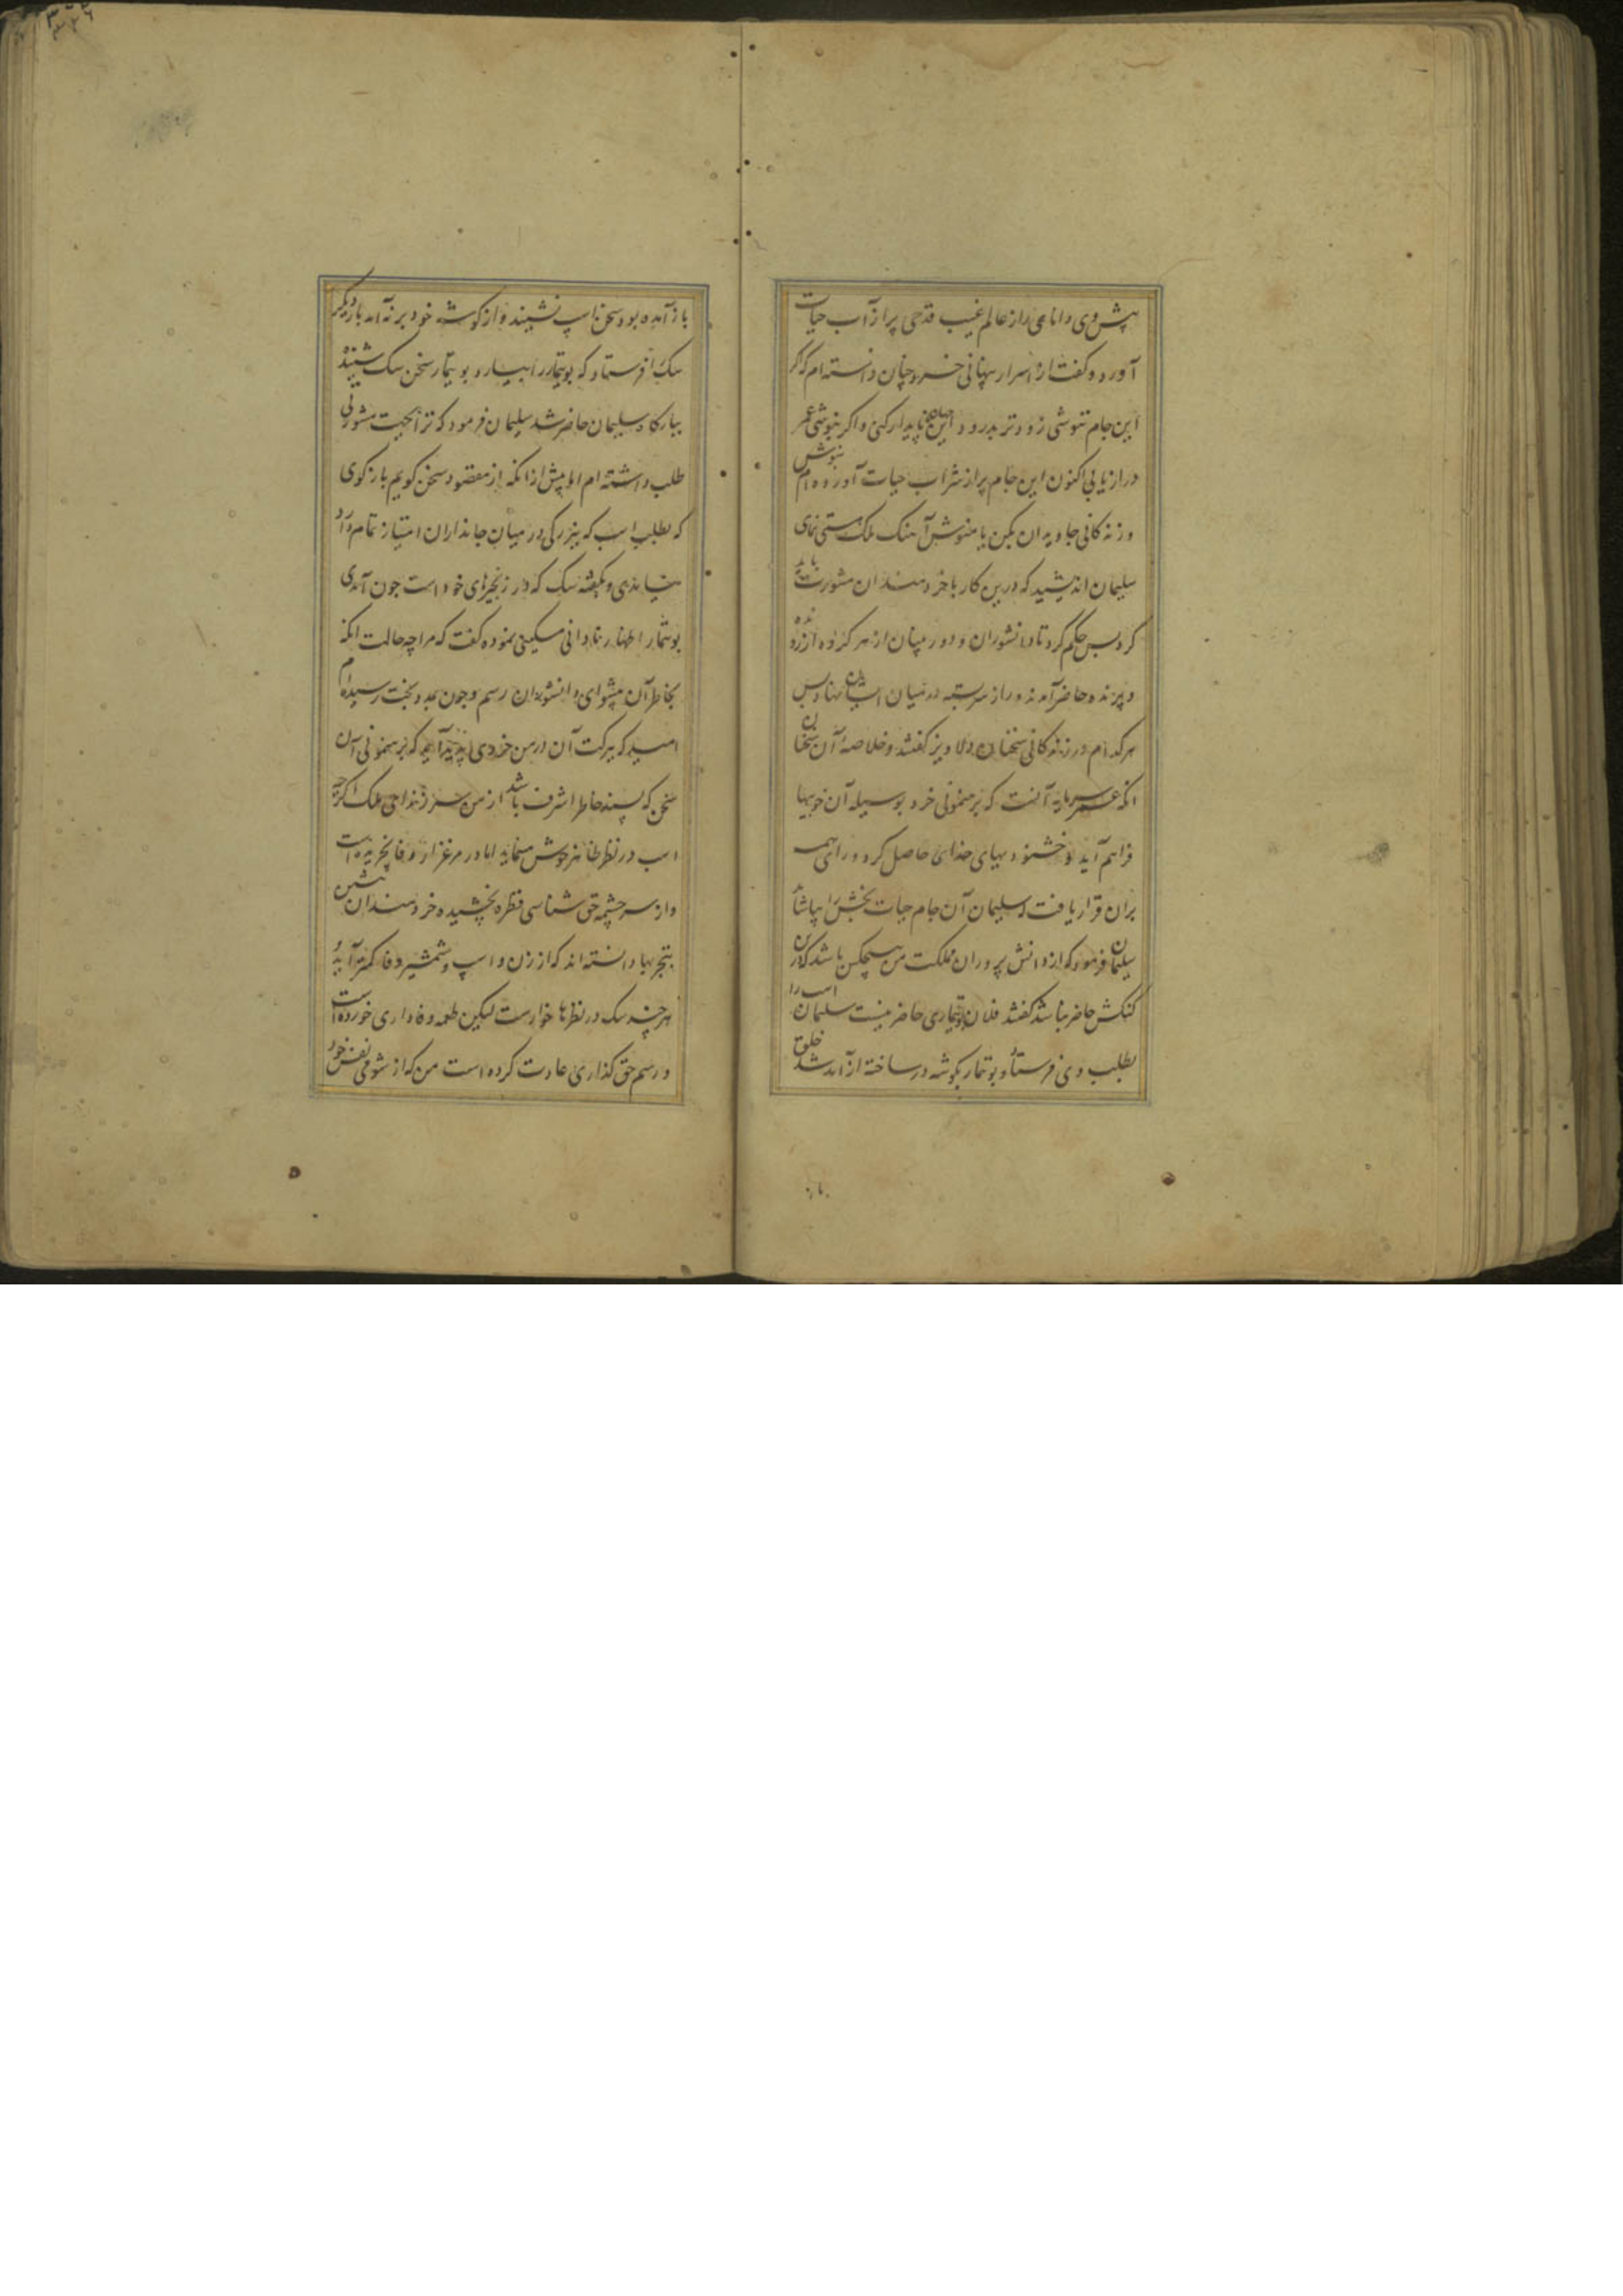 پیش وی دانای راز عالم غیب قدحی پر از آب حیات
آورد و گفت از اسرار پنهانی خسرو چنان دانسته ام که اگر
این جام ننوشی زودتر بدرود این جهان ناپایدار کنی و اگر بنوشی عمر
دراز یابی اکنون این جام پر از شراب حیات آورده ام بنوش
و زندگانی جاویدان کن یا منوش آهنگ ملک نیستی نمای
سلیمان اندیشید که درین کار با خردمندان مشورت باید
کرد پس حکم کرد تا دانشوران و دوربینان از هر گروه از رونده
و پرنده حاضر آمدند و راز سربسته در میان ایشان نهاد پس
هر کدام در زندگانی سخنان دلاویز گفتند و خلاصه آن سخنان
انکه عمر سرمایه آنست که برهنمونی خرد بوسیله آن خوبیها
فراهم آید و خشنودیهای خدای حاصل گردد رای همه
بران قرار یافت که سلیمان آن جام حیات بخش را بیاشامد
سلیمان فرمود که از دانش پروران مملکت من هیچکس باشد که درین
کنکش حاضر نباشد گفتند فلان بوتیماری حاضر نیست سلیمان اسب را
بطلب وی فرستاد بوتیمار بگوشه در ساخته از آمد شد خلق
باز
باز آمده بود سخن اسپ نشنید و از گوشه خود برنه آمد بار دیگر
سگ را فرستاد که بوتیمار را بیارد بوتیمار سخن سگ شنیده
ببارگاه سلیمان حاضر شد سلیمان فرمود که ترا بجهت مشورتی
طلب داشته ام اما پیش از انکه از مقصود سخن گویم باز گوی
که بطلب اسب که ببزرگی در میان جانداران امتیاز تمام دارد
نیامدی و بگفته سگ که در زنجیرهای خود است چون آمدی
بوتیمار اظهار نادانی و مسکینی نموده گفت که مرا چه حالت انکه
بخاطر آن پیشوای دانشوران رسم و چون بمدد بخت رسیده ام
امید که ببرکت آن در من خردی پدید آید که برهنمونی آن
سخن که پسند خاطر اشرف باشد از من سر زند ای ملک اگرچه
اسب در نظر ظاهر خوش مینماید اما در مرغزار وفا نچریده است
و از سرچشمه حق شناسی قطره نچشیده خردمندان پیشین
بتجربها دانسته اند که از زن و اسپ و شمشیر وفا کمتر آید و
هر چند سگ در نظرها خوارست لیکن طعمه وفاداری خورده است
و رسم حق گذاری عادت کرده است من که از شومی نفس خود